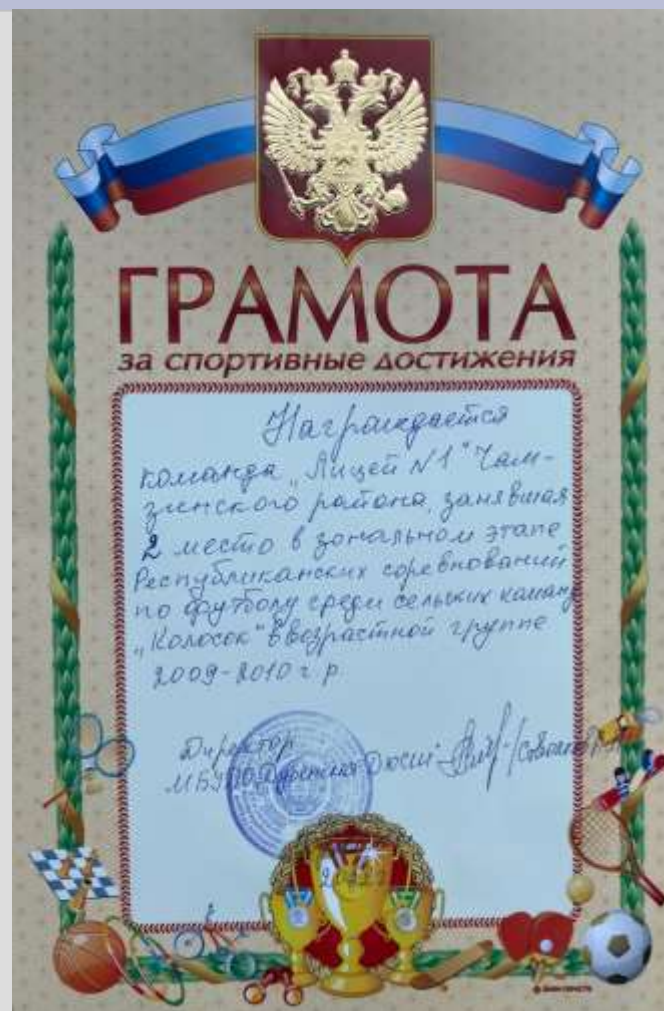 ГРАМОТА
за спортивные достижения
Награждается
команда „Лицей №1" Чам-
зинского района, занявшая
2 место в зональном этапе
Республиканских соревнований
по футболу среди сельских команд
„Колосок" в возрастной группе
2009-2010 г.р.
Директор
МБУДО Дубенская ДЮСШ